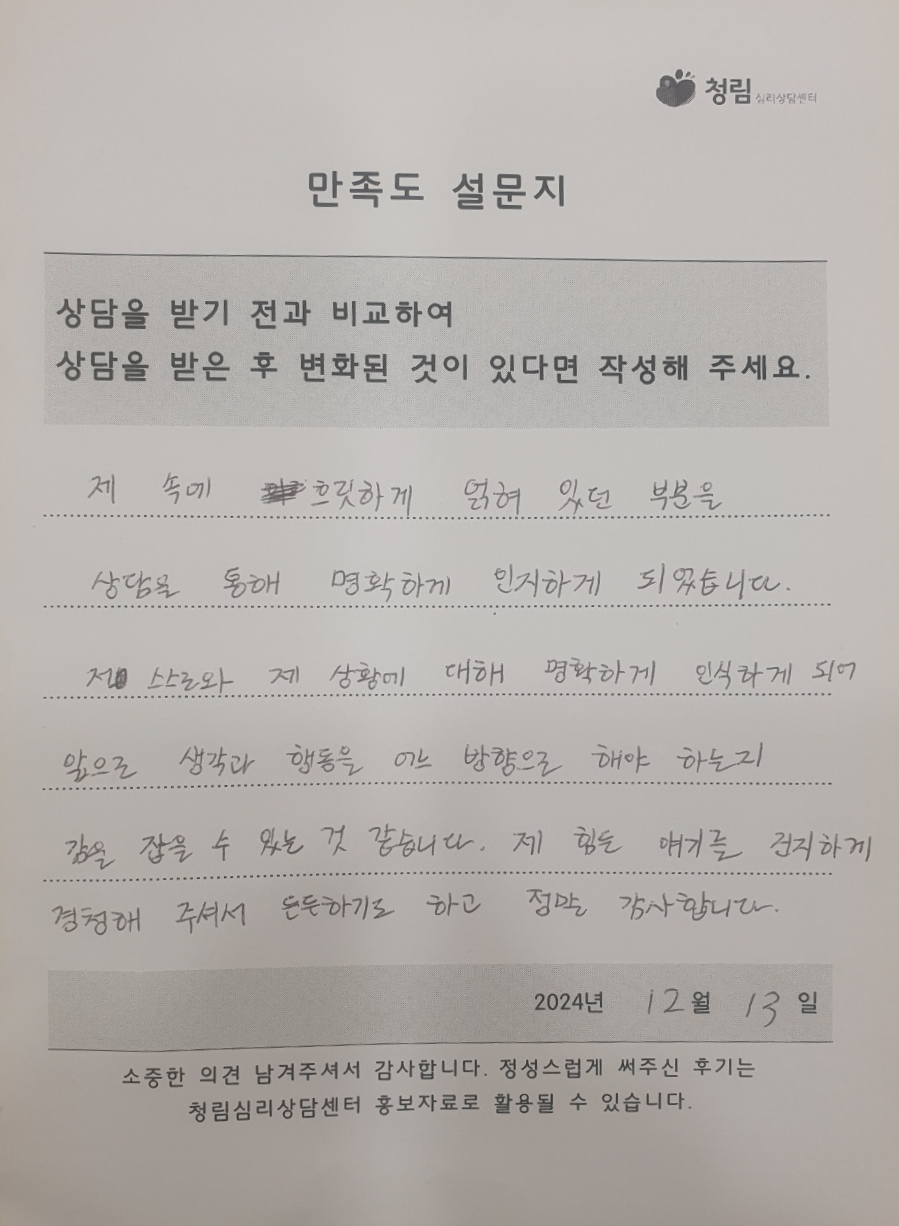 청림 심리상담센터
만족도 설문지
상담을 받기 전과 비교하여
상담을 받은 후 변화된 것이 있다면 작성해 주세요.
제 속에 흐릿하게 얽혀 있던 부분을
상담을 통해 명확하게 인지하게 되었습니다.
저 스스로와 제 상황에 대해 명확하게 인식하게 되어
앞으로 생각과 행동을 어느 방향으로 해야 하는지
감을 잡을 수 있는 것 같습니다. 제 힘든 얘기를 진지하게
경청해 주셔서 든든하기도 하고 정말 감사합니다.
2024년 12월 13일
소중한 의견 남겨주셔서 감사합니다. 정성스럽게 써주신 후기는
청림심리상담센터 홍보자료로 활용될 수 있습니다.